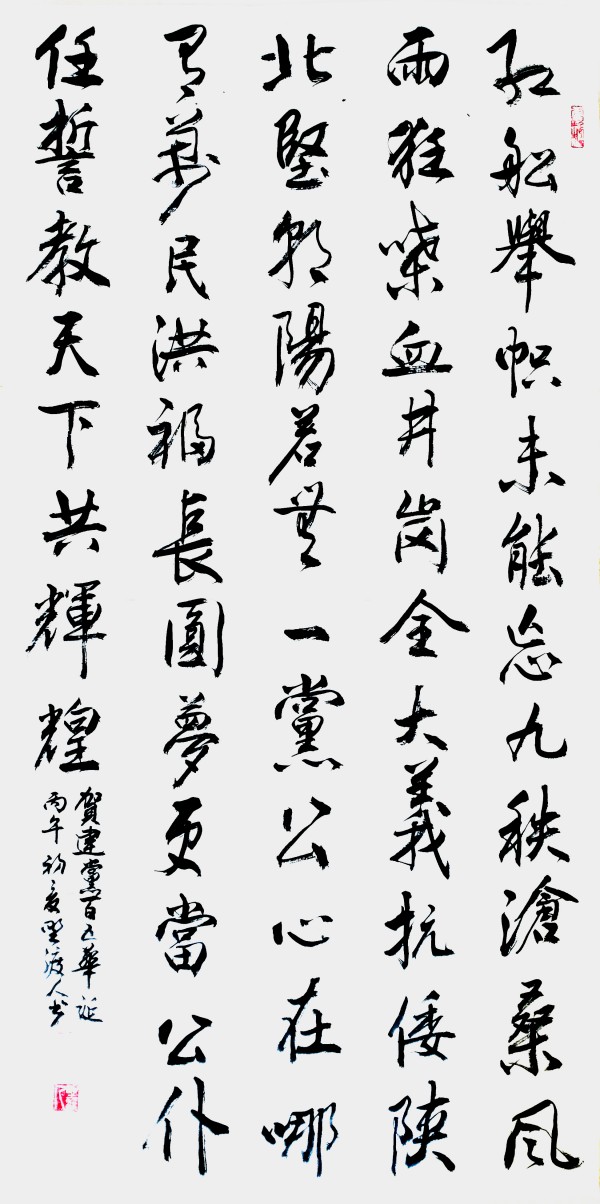 红船舉幟未能忘九秩滄桑風
雨狂喋血井崗全大義抗倭陝
北堅朝陽若無一黨公心在哪
有萬民洪福長圓夢更當公仆
任誓教天下共輝煌
賀建黨百五華誕
丙午初夏野渡人书